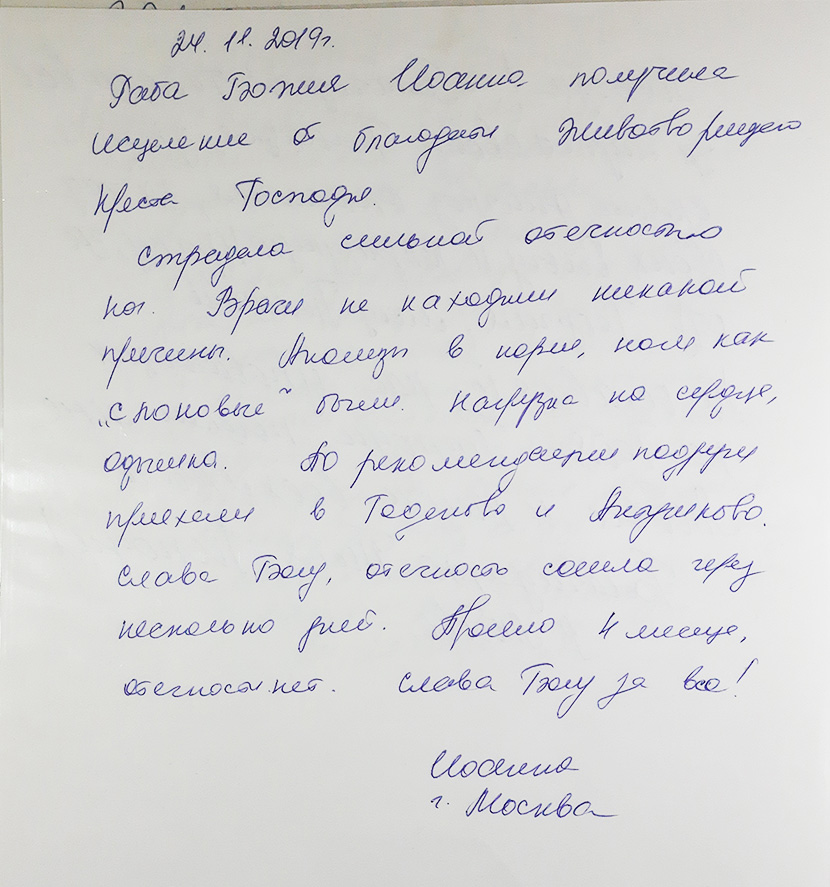 24. 11. 2019г.
Раба Божия Иоанна получила
исцеление от благодати Животворящего
Креста Господня.
Страдала сильной отечностью
ног. Врачи не находили никакой
причины. Анализы в норме, ноги как
„слоновые" были. Нагрузка на сердце,
одышка. По рекомендации подруги
приехали в Годеново и Антушково.
Слава Богу, отечность сошла через
несколько дней. Прошло 4 месяца,
отечности нет. Слава Богу за все!
Иоанна
г. Москва